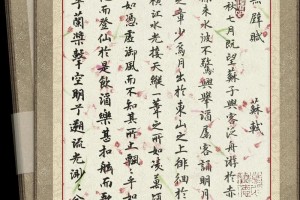 壁賦 蘇軾
秋七月既望蘇子與客泛舟游於赤
來水波不興舉酒屬客誦明月
之章少焉月出於東山之上徘徊於
橫江水光接天縱一葦之所如凌萬頃
如憑虛御風而不知其所止飄飄乎如
而登仙於是飲酒樂甚扣舷而歌
兮蘭槳擊空明兮遡流光渺渺兮